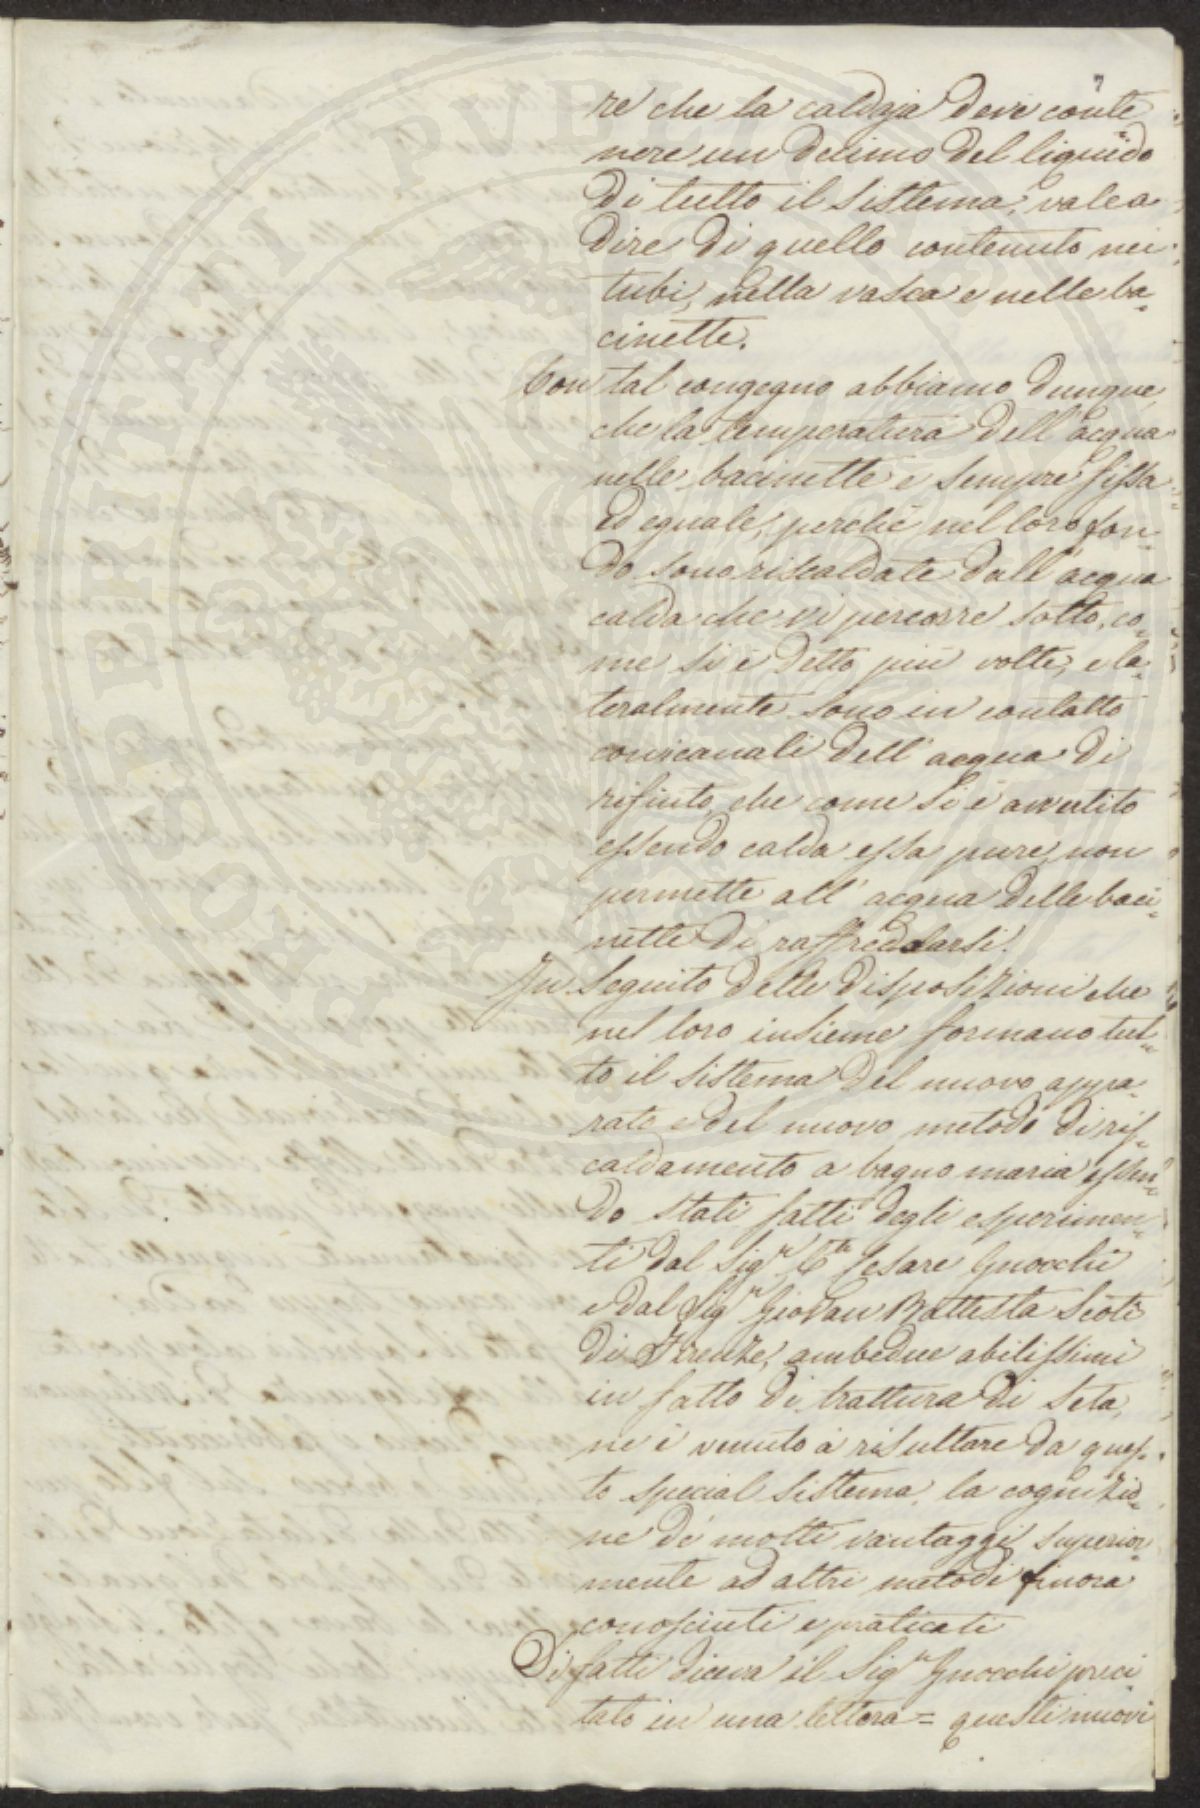 7
re che la caldaja deve conte
nere un decimo del liquido
di tutto il sistema, vale a
dire di quello contenuto nei
tubi, nella vasca e nelle ba-
cinette.
Con tal congegno abbiamo dunque,
che la temperatura dell'acqua
nelle bacinette e sempre fissa
ed eguale, perchè nel loro fon-
do sono riscaldate dall'acqua
calda che vi percorre sotto, co-
me si è detto più volte, e la-
teralmente sono in contatto
con i canali dell'acqua di
rifiuto, che come si è avvertito
essendo calda essa pure, non
permette all'acqua delle baci-
nette di raffreddarsi.
In seguito delle disposizioni che
nel loro insieme formano tut-
to il sistema del nuovo appa-
rato e del nuovo metodo di ris-
caldamento a bagno maria essen-
do stati fatti degli esperimen-
ti dal Sigr. Cte. Cesare Gnocchi
e dal Sigr. Giovan Battista Scoti
di Firenze, ambedue abilissimi
in fatto di trattura di seta,
ne è venuto a risultare da ques-
to special sistema, la cognizio-
ne di molti vantaggi superior-
mente ad altri metodi finora
conosciuti e praticati
Di fatti diceva il Sigr. Gnocchi preci
tato in una lettera = questi nuovi
PROSPERITATI PVBLICAE